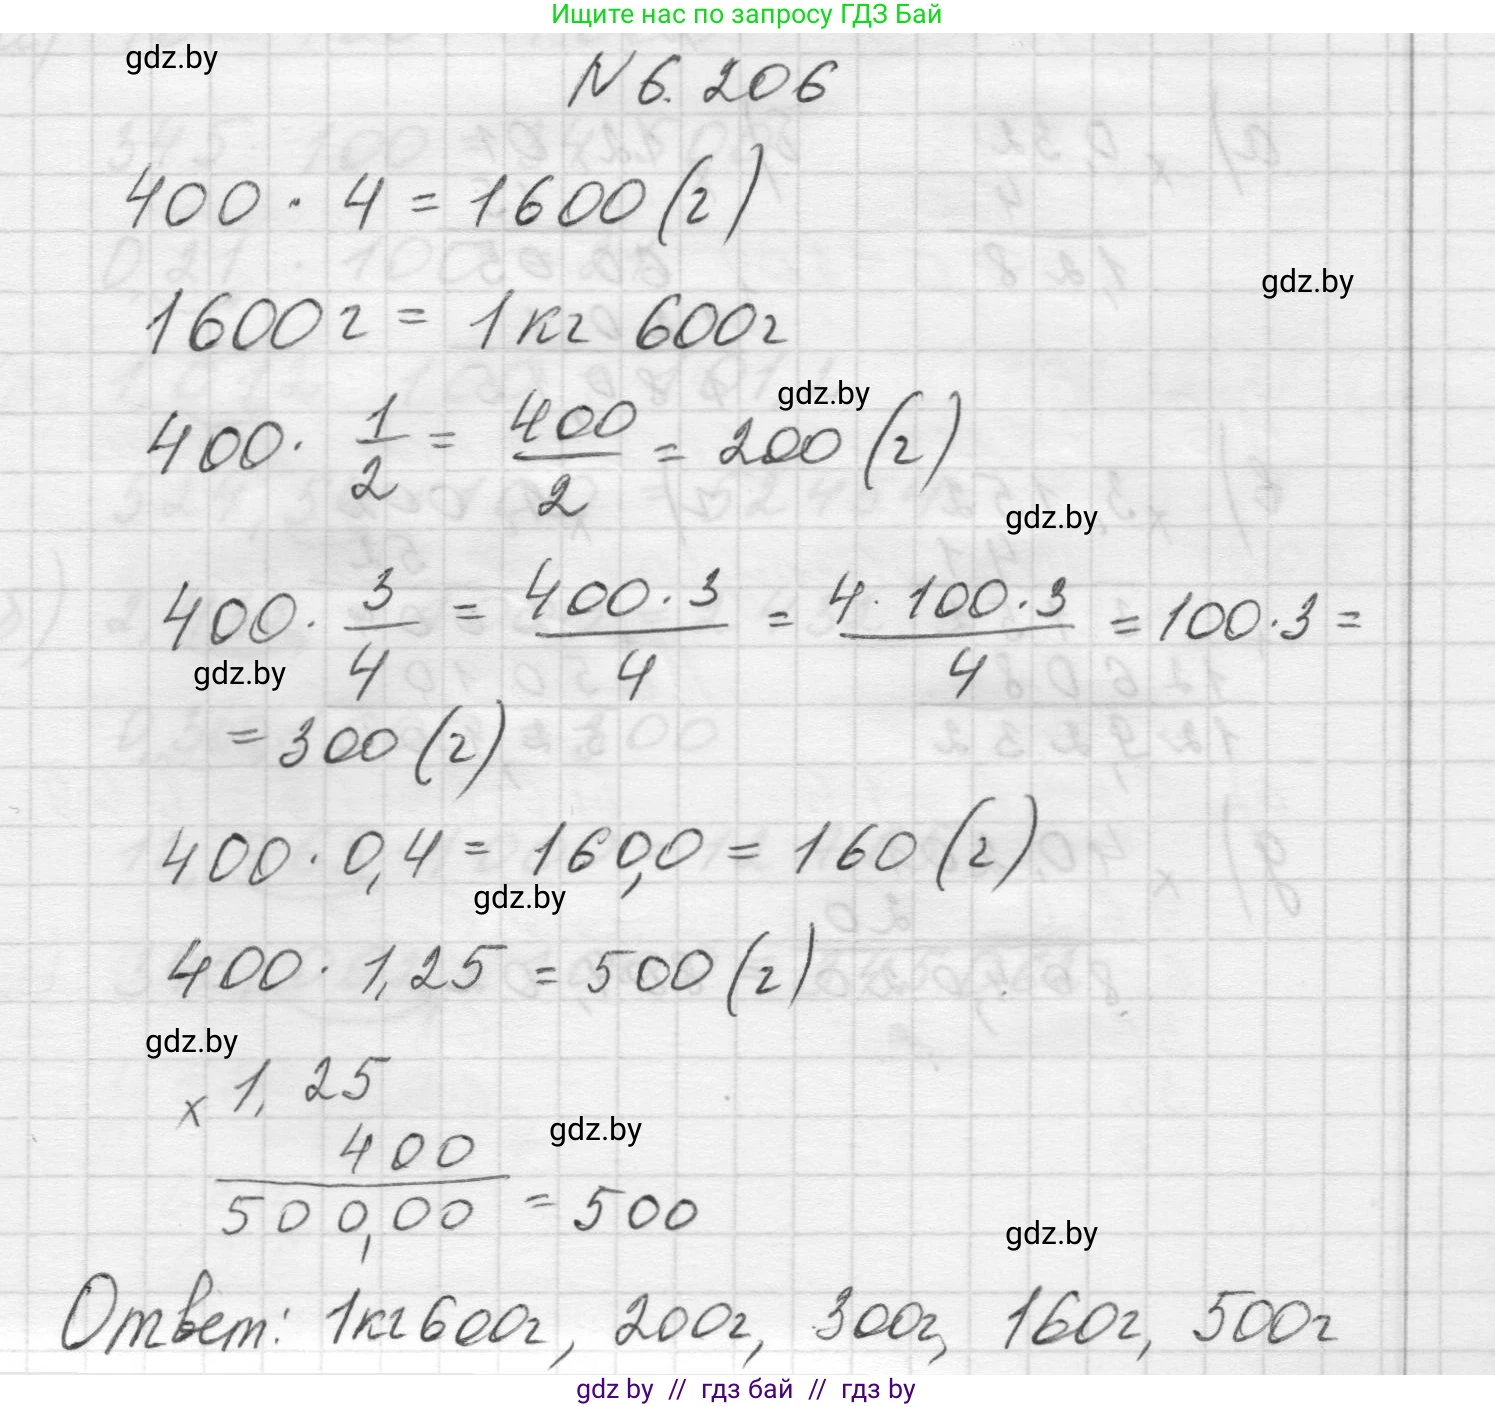 Ищите нас по запросу ГДЗ Бай
gdz.by
N 6.206
400 · 4 = 1600 (г)
gdz.by
1600 г = 1 кг 600 г
gdz.by
400 · 1/2 = 400/2 = 200 (г)
gdz.by
400 · 3/4 = 400 · 3/4 = 4 · 100 · 3/4 = 100 · 3 =
gdz.by
= 300 (г)
400 · 0,4 = 160,0 = 160 (г)
gdz.by
400 · 1,25 = 500 (г)
gdz.by
× 1,25
400
gdz.by
500,00 = 500
gdz.by
Ответ: 1кг 600г, 200г, 300г, 160г, 500г
gdz by // гдз бай // гдз by